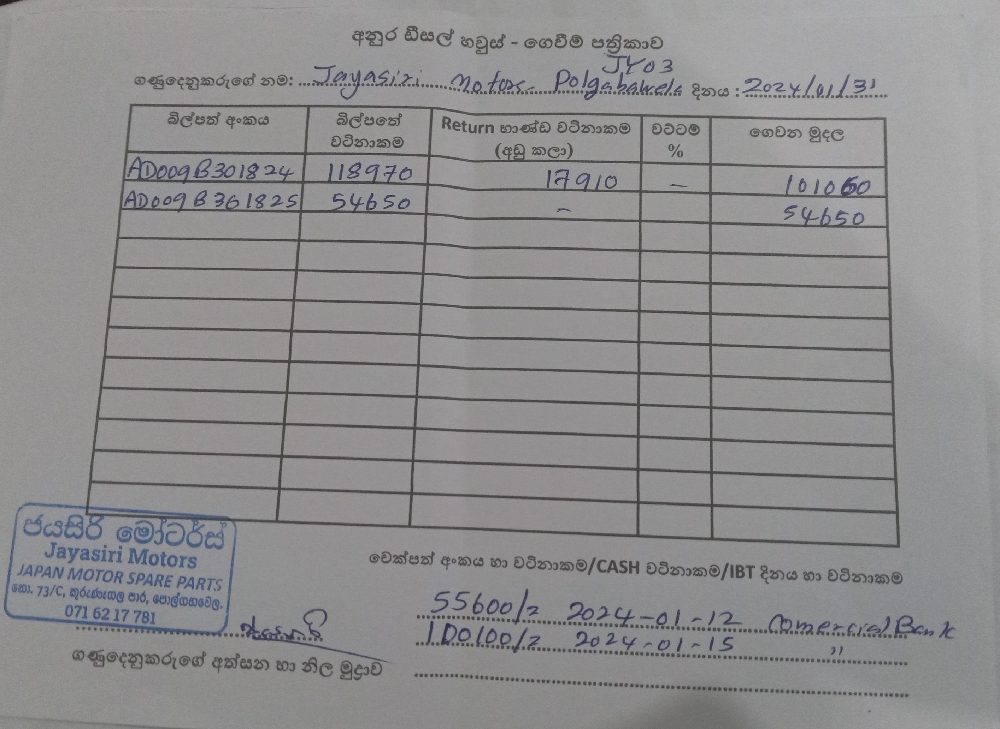 අනුර ඩීසල් හවුස් - ගෙවීම් පත්‍රිකාව
JY03
ගණුදෙනුකරුගේ නම: Jayasiri Motors - Polgahawela දිනය : 2024/01/31
බිල්පත් අංකය බිල්පතේ වටිනාකම Return භාණ්ඩ වටිනාකම (අඩු කලා) වට්ටම් % ගෙවන මුදල
AD009B301824 118970 17910 – 101060
AD009B301825 54650 – 54650
ජයසිරි මෝටර්ස්
Jayasiri Motors
JAPAN MOTOR SPARE PARTS
නො. 73/C, කුරුණෑගල පාර, පොල්ගහවෙල.
071 62 17 781
චෙක්පත් අංකය හා වටිනාකම/CASH වටිනාකම/IBT දිනය හා වටිනාකම
55600/= 2024-01-12 Comercial Bank
100100/= 2024-01-15 "
ගණුදෙනුකරුගේ අත්සන හා නිල මුද්‍රාව